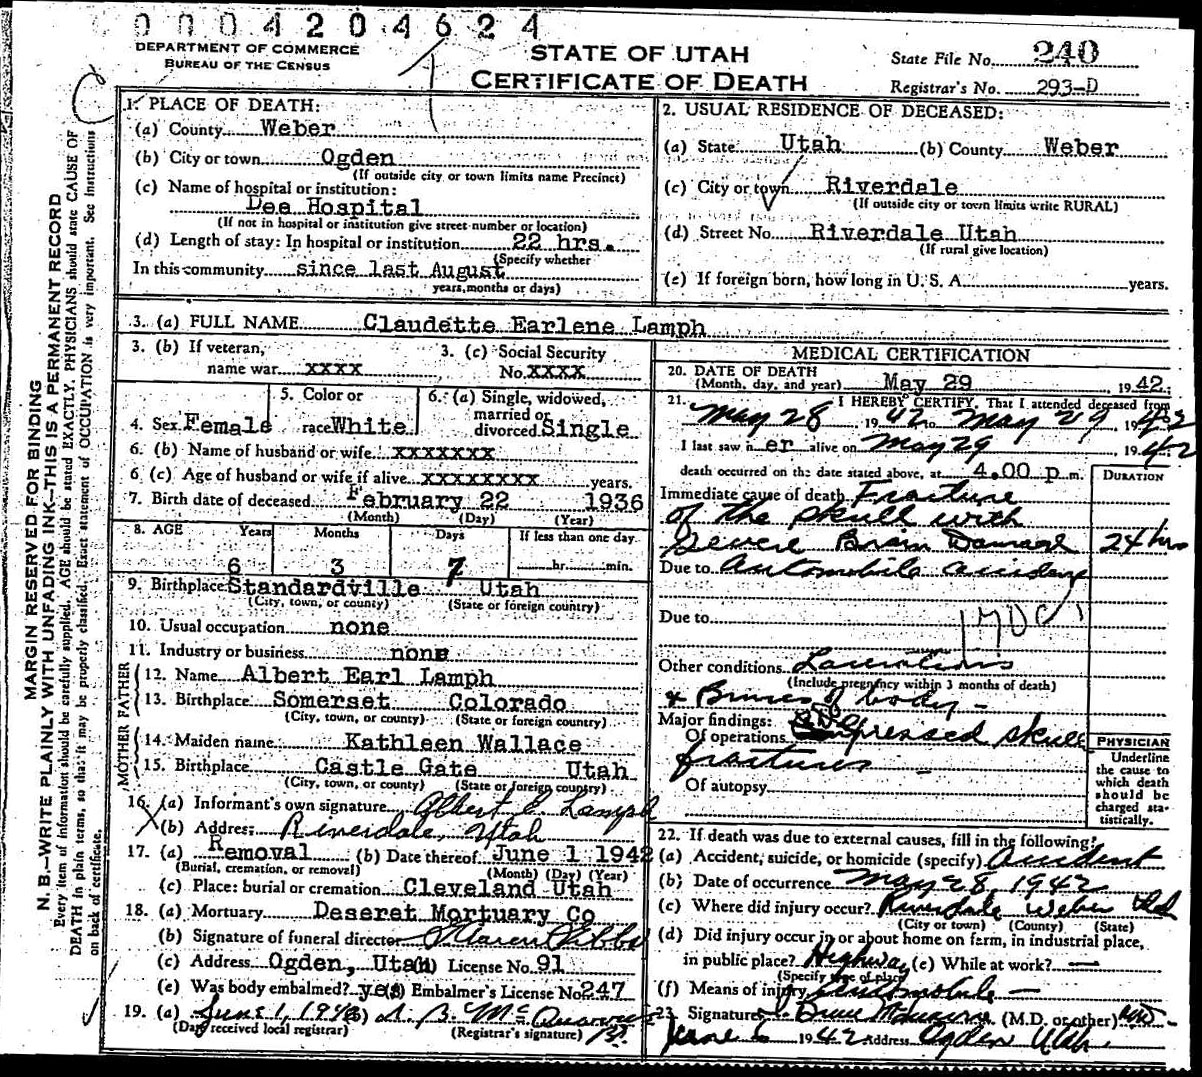 0 0 0 4 2 0 4 6 2 4
DEPARTMENT OF COMMERCE
BUREAU OF THE CENSUS
STATE OF UTAH
CERTIFICATE OF DEATH
State File No. 240
Registrar's No. 293-D
MARGIN RESERVED FOR BINDING
N. B.—WRITE PLAINLY WITH UNFADING INK—THIS IS A PERMANENT RECORD
Every item of information should be carefully supplied. AGE should be stated EXACTLY. PHYSICIANS should state CAUSE OF
DEATH in plain terms, so that it may be properly classified. Exact statement of OCCUPATION is very important. See instructions
on back of certificate.
1. PLACE OF DEATH:
(a) County Weber
(b) City or town Ogden
(If outside city or town limits name Precinct)
(c) Name of hospital or institution:
Dee Hospital
(If not in hospital or institution give street number or location)
(d) Length of stay: In hospital or institution 22 hrs.
(Specify whether
In this community since last August
years, months or days)
2. USUAL RESIDENCE OF DECEASED:
(a) State Utah (b) County Weber
(c) City or town Riverdale
(If outside city or town limits write RURAL)
(d) Street No. Riverdale Utah
(If rural give location)
(e) If foreign born, how long in U. S. A. years.
3. (a) FULL NAME Claudette Earlene Lamph
3. (b) If veteran, name war XXXX
3. (c) Social Security No. XXXX
4. Sex Female
5. Color or race White
6. (a) Single, widowed, married or divorced Single
6. (b) Name of husband or wife XXXXXXX
6 (c) Age of husband or wife if alive XXXXXXXX years.
7. Birth date of deceased February 22 1936
(Month) (Day) (Year)
8. AGE Years Months Days If less than one day
6 3 7 hr. min.
9. Birthplace Standardville Utah
(City, town, or county) (State or foreign country)
10. Usual occupation none
11. Industry or business none
FATHER
12. Name Albert Earl Lamph
13. Birthplace Somerset Colorado
(City, town, or county) (State or foreign country)
MOTHER
14. Maiden name Kathleen Wallace
15. Birthplace Castle Gate Utah
(City, town, or county) (State or foreign country)
16. (a) Informant's own signature Albert E. Lamph
(b) Address Riverdale, Utah
17. (a) Removal (b) Date thereof June 1 1942
(Burial, cremation, or removal) (Month) (Day) (Year)
(c) Place: burial or cremation Cleveland Utah
18. (a) Mortuary Deseret Mortuary Co
(b) Signature of funeral director
(c) Address Ogden, Utah (d) License No. 91
(e) Was body embalmed? yes (f) Embalmer's License No 247
19. (a) June 1, 1942 (b)
(Date received local registrar) (Registrar's signature)
MEDICAL CERTIFICATION
20. DATE OF DEATH
(Month, day, and year) May 29 1942.
21. I HEREBY CERTIFY, That I attended deceased from
May 28 1942 to May 29 1942
I last saw her alive on May 29 1942
death occurred on the date stated above, at 4.00 p m. DURATION
Immediate cause of death Fracture
of the skull with
severe Brain Damage 24 hrs
Due to Automobile accident
Due to
Other conditions Lacerations
(Include pregnancy within 3 months of death)
& Bruises of body -
Major findings:
Of operations Depressed skull
fractures -
Of autopsy
PHYSICIAN
Underline
the cause to
which death
should be
charged sta-
tistically.
22. If death was due to external causes, fill in the following:
(a) Accident, suicide, or homicide (specify) Accident
(b) Date of occurrence May 28, 1942
(c) Where did injury occur? Riverdale Weber Utah
(City or town) (County) (State)
(d) Did injury occur in or about home on farm, in industrial place,
in public place? Highway (e) While at work? —
(Specify type of place)
(f) Means of injury Automobile —
23. Signature (M.D. or other) MD.
June 6 1942 Address Ogden Utah.